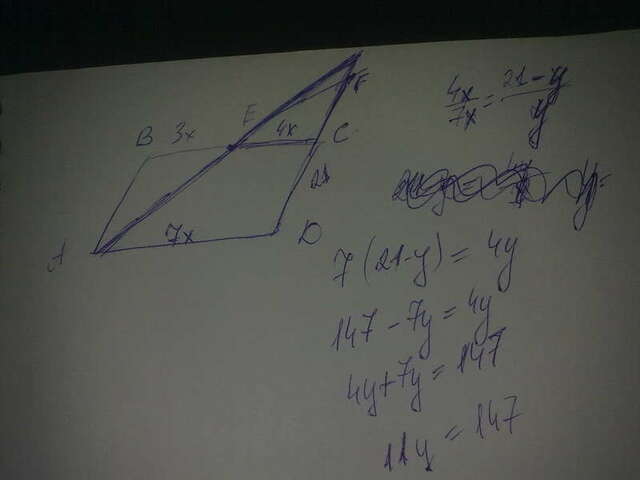 B 3x E 4x C F
21
A 7x D
4x/7x = 21-y/y
7(21-y) = 4y
147 - 7y = 4y
4y+7y = 147
11y = 147